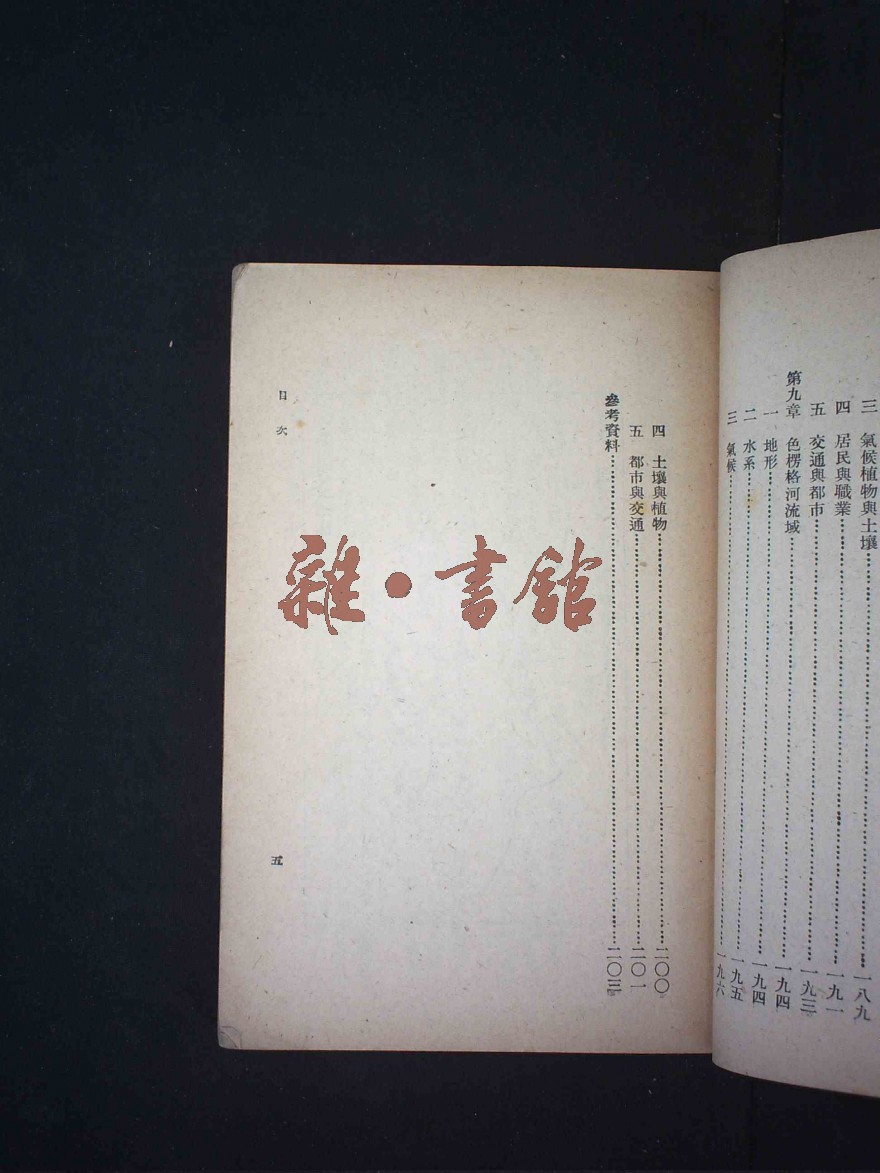 三 氣候植物與土壤……一八九
四 居民與職業……一九一
五 交通與都市……一九三
第九章 色楞格河流域……一九四
一 地形……一九四
二 水系……一九五
三 氣候……一九六
四 土壤與植物……二〇〇
五 都市與交通……二〇一
參考資料……二〇三
目次
五
雜•書館